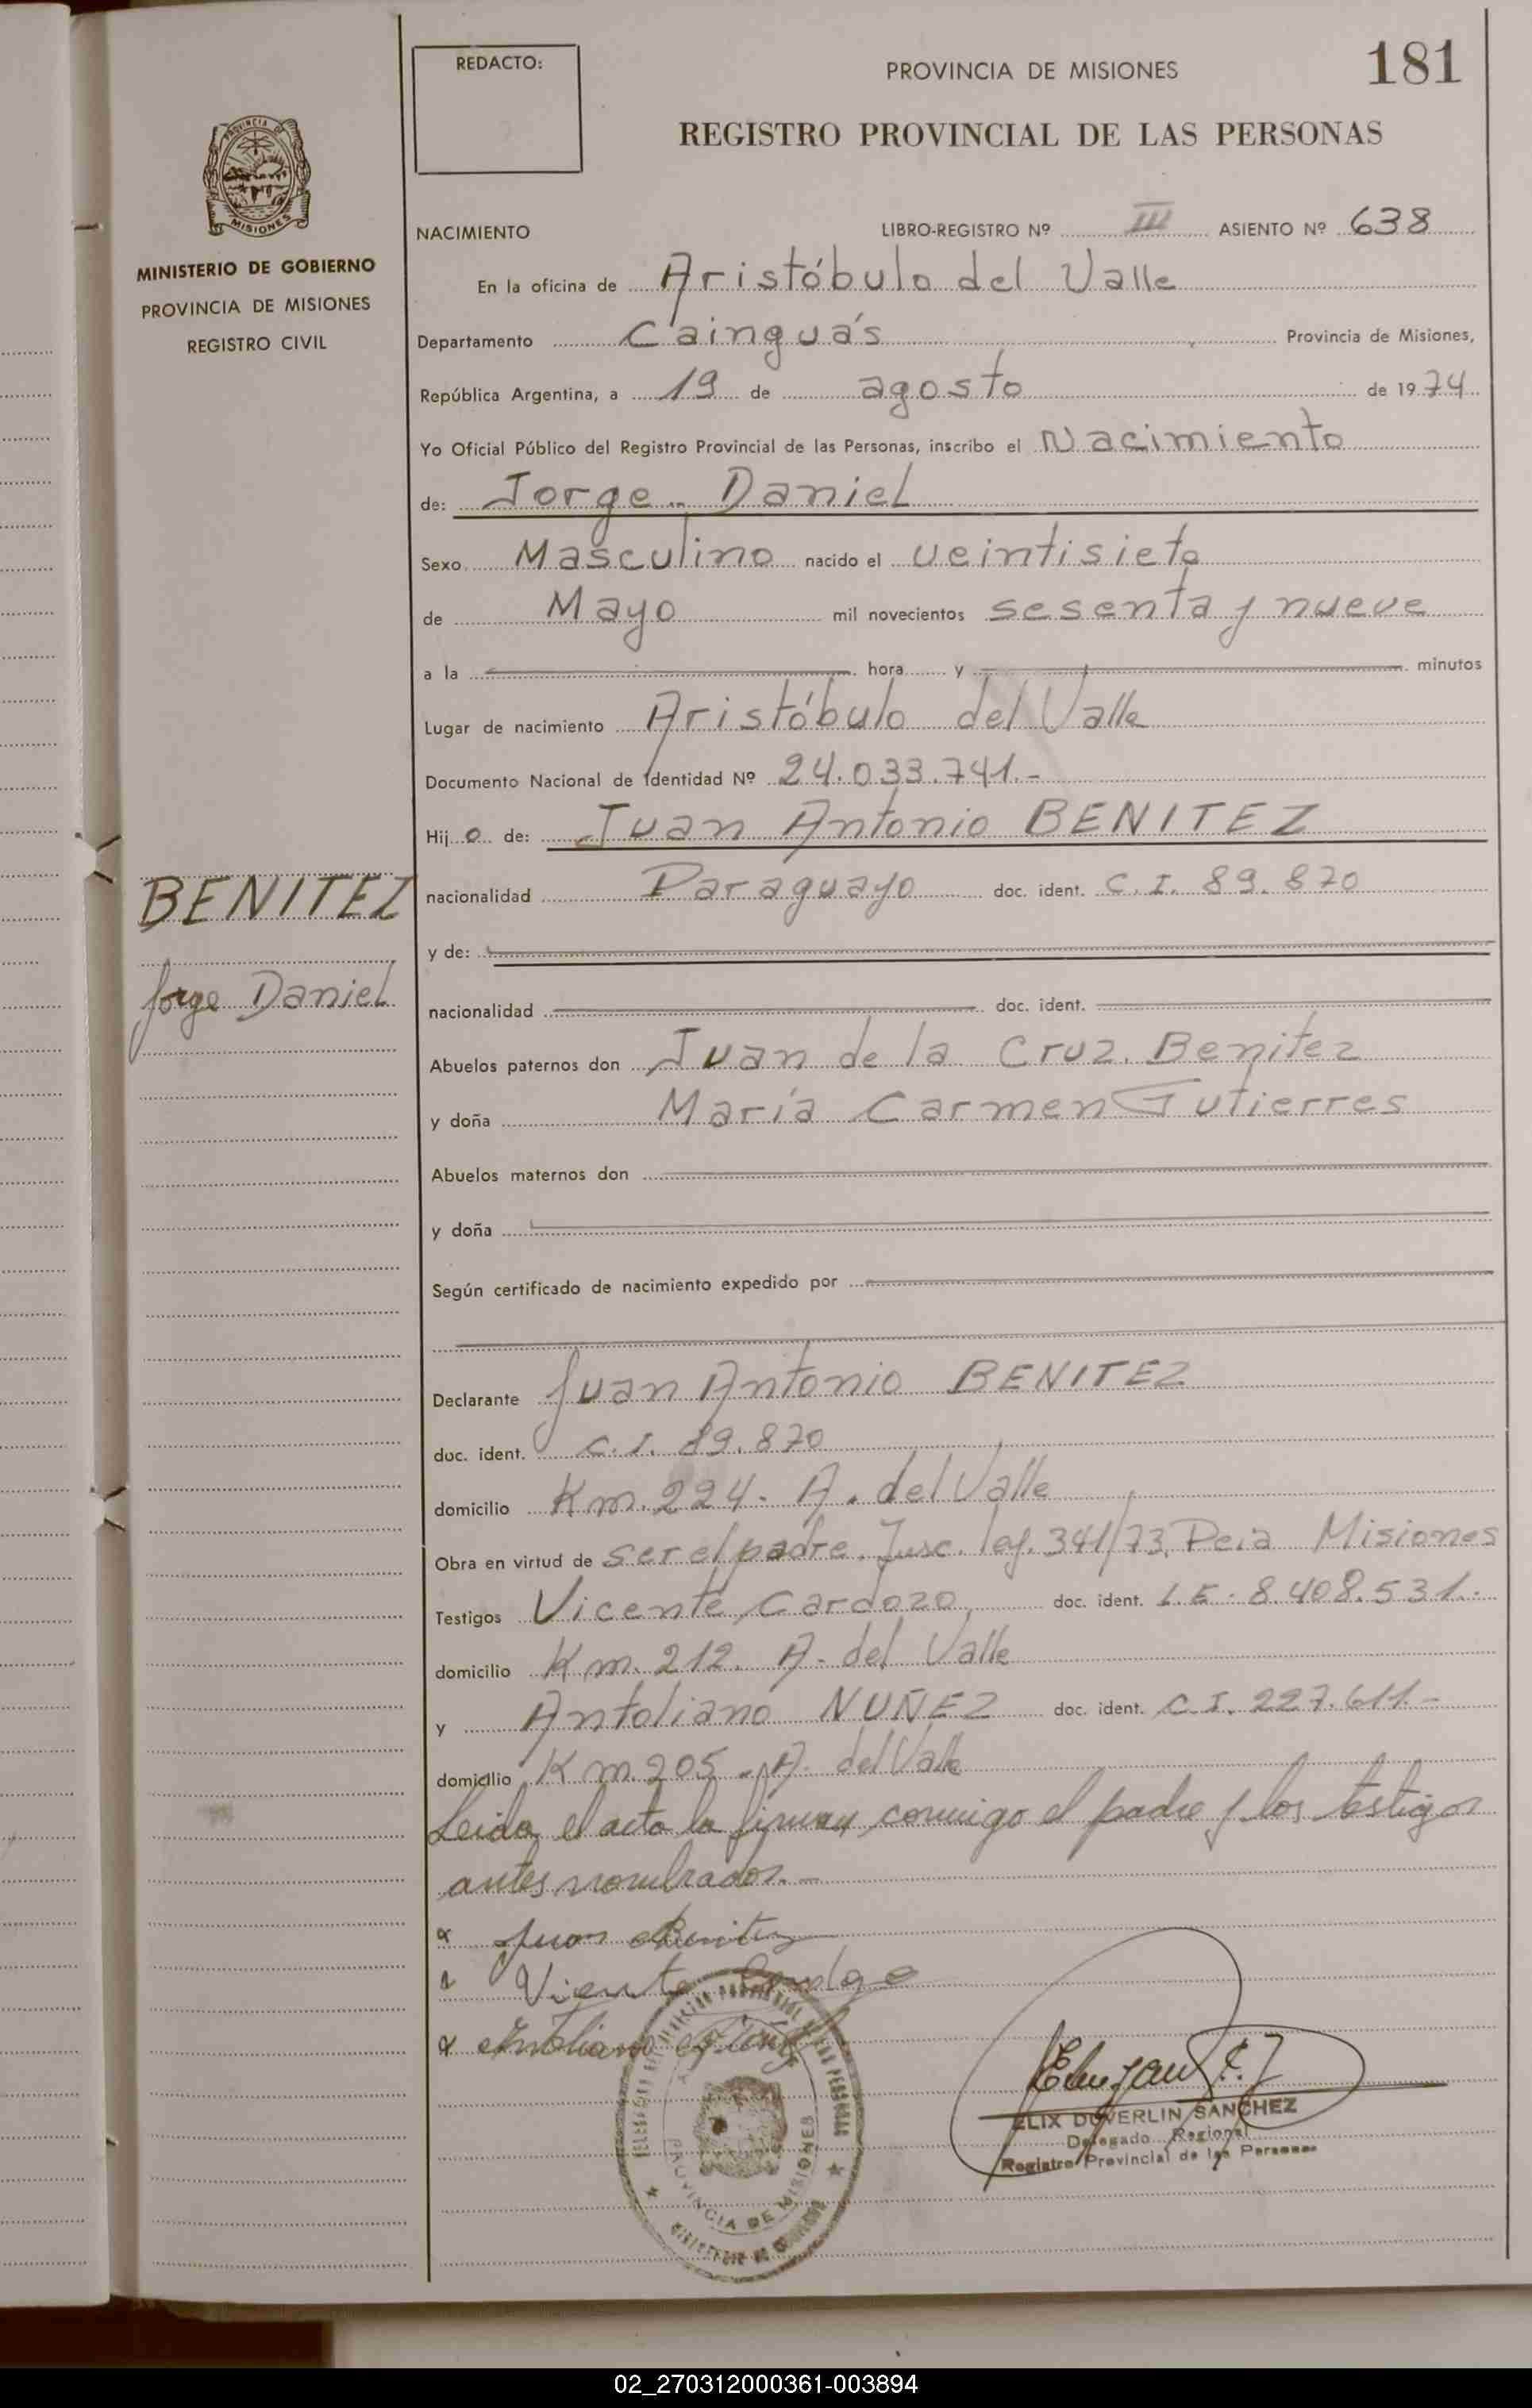 REDACTO:
PROVINCIA DE MISIONES
181
REGISTRO PROVINCIAL DE LAS PERSONAS
PROVINCIA DE
MISIONES
MINISTERIO DE GOBIERNO
PROVINCIA DE MISIONES
REGISTRO CIVIL
NACIMIENTO LIBRO-REGISTRO Nº III ASIENTO Nº 638
En la oficina de Aristóbulo del Valle
Departamento Cainguás Provincia de Misiones,
República Argentina, a 19 de agosto de 1974
Yo Oficial Público del Registro Provincial de las Personas, inscribo el Nacimiento
de: Jorge Daniel
Sexo Masculino nacido el veintisiete
de Mayo mil novecientos sesenta y nueve
a la hora y minutos
Lugar de nacimiento Aristóbulo del Valle
Documento Nacional de Identidad Nº 24.033.741.-
Hijo de: Juan Antonio BENITEZ
BENITEZ
Jorge Daniel
nacionalidad Paraguayo doc. ident. C.I. 89.870
y de:
nacionalidad doc. ident.
Abuelos paternos don Juan de la Cruz Benitez
y doña María Carmen Gutierres
Abuelos maternos don
y doña
Según certificado de nacimiento expedido por
Declarante Juan Antonio BENITEZ
doc. ident. C.I. 89.870
domicilio Km. 224. A. del Valle
Obra en virtud de ser el padre. Insc. ley. 341/73. Pcia Misiones
Testigos Vicente Cardozo doc. ident. L.E. 8.408.531.-
domicilio Km. 212. A. del Valle
y Antoliano NUÑEZ doc. ident. C.I. 227.611.-
domicilio Km. 205 - A. del Valle
Leida el acta la firman conmigo el padre y los testigos
antes nombrados.-
Juan Benitez
PROVINCIA DE MISIONES
ELIX DUVERLIN SANCHEZ
Delegado Regional
Registro Provincial de las Personas
02_270312000361-003894